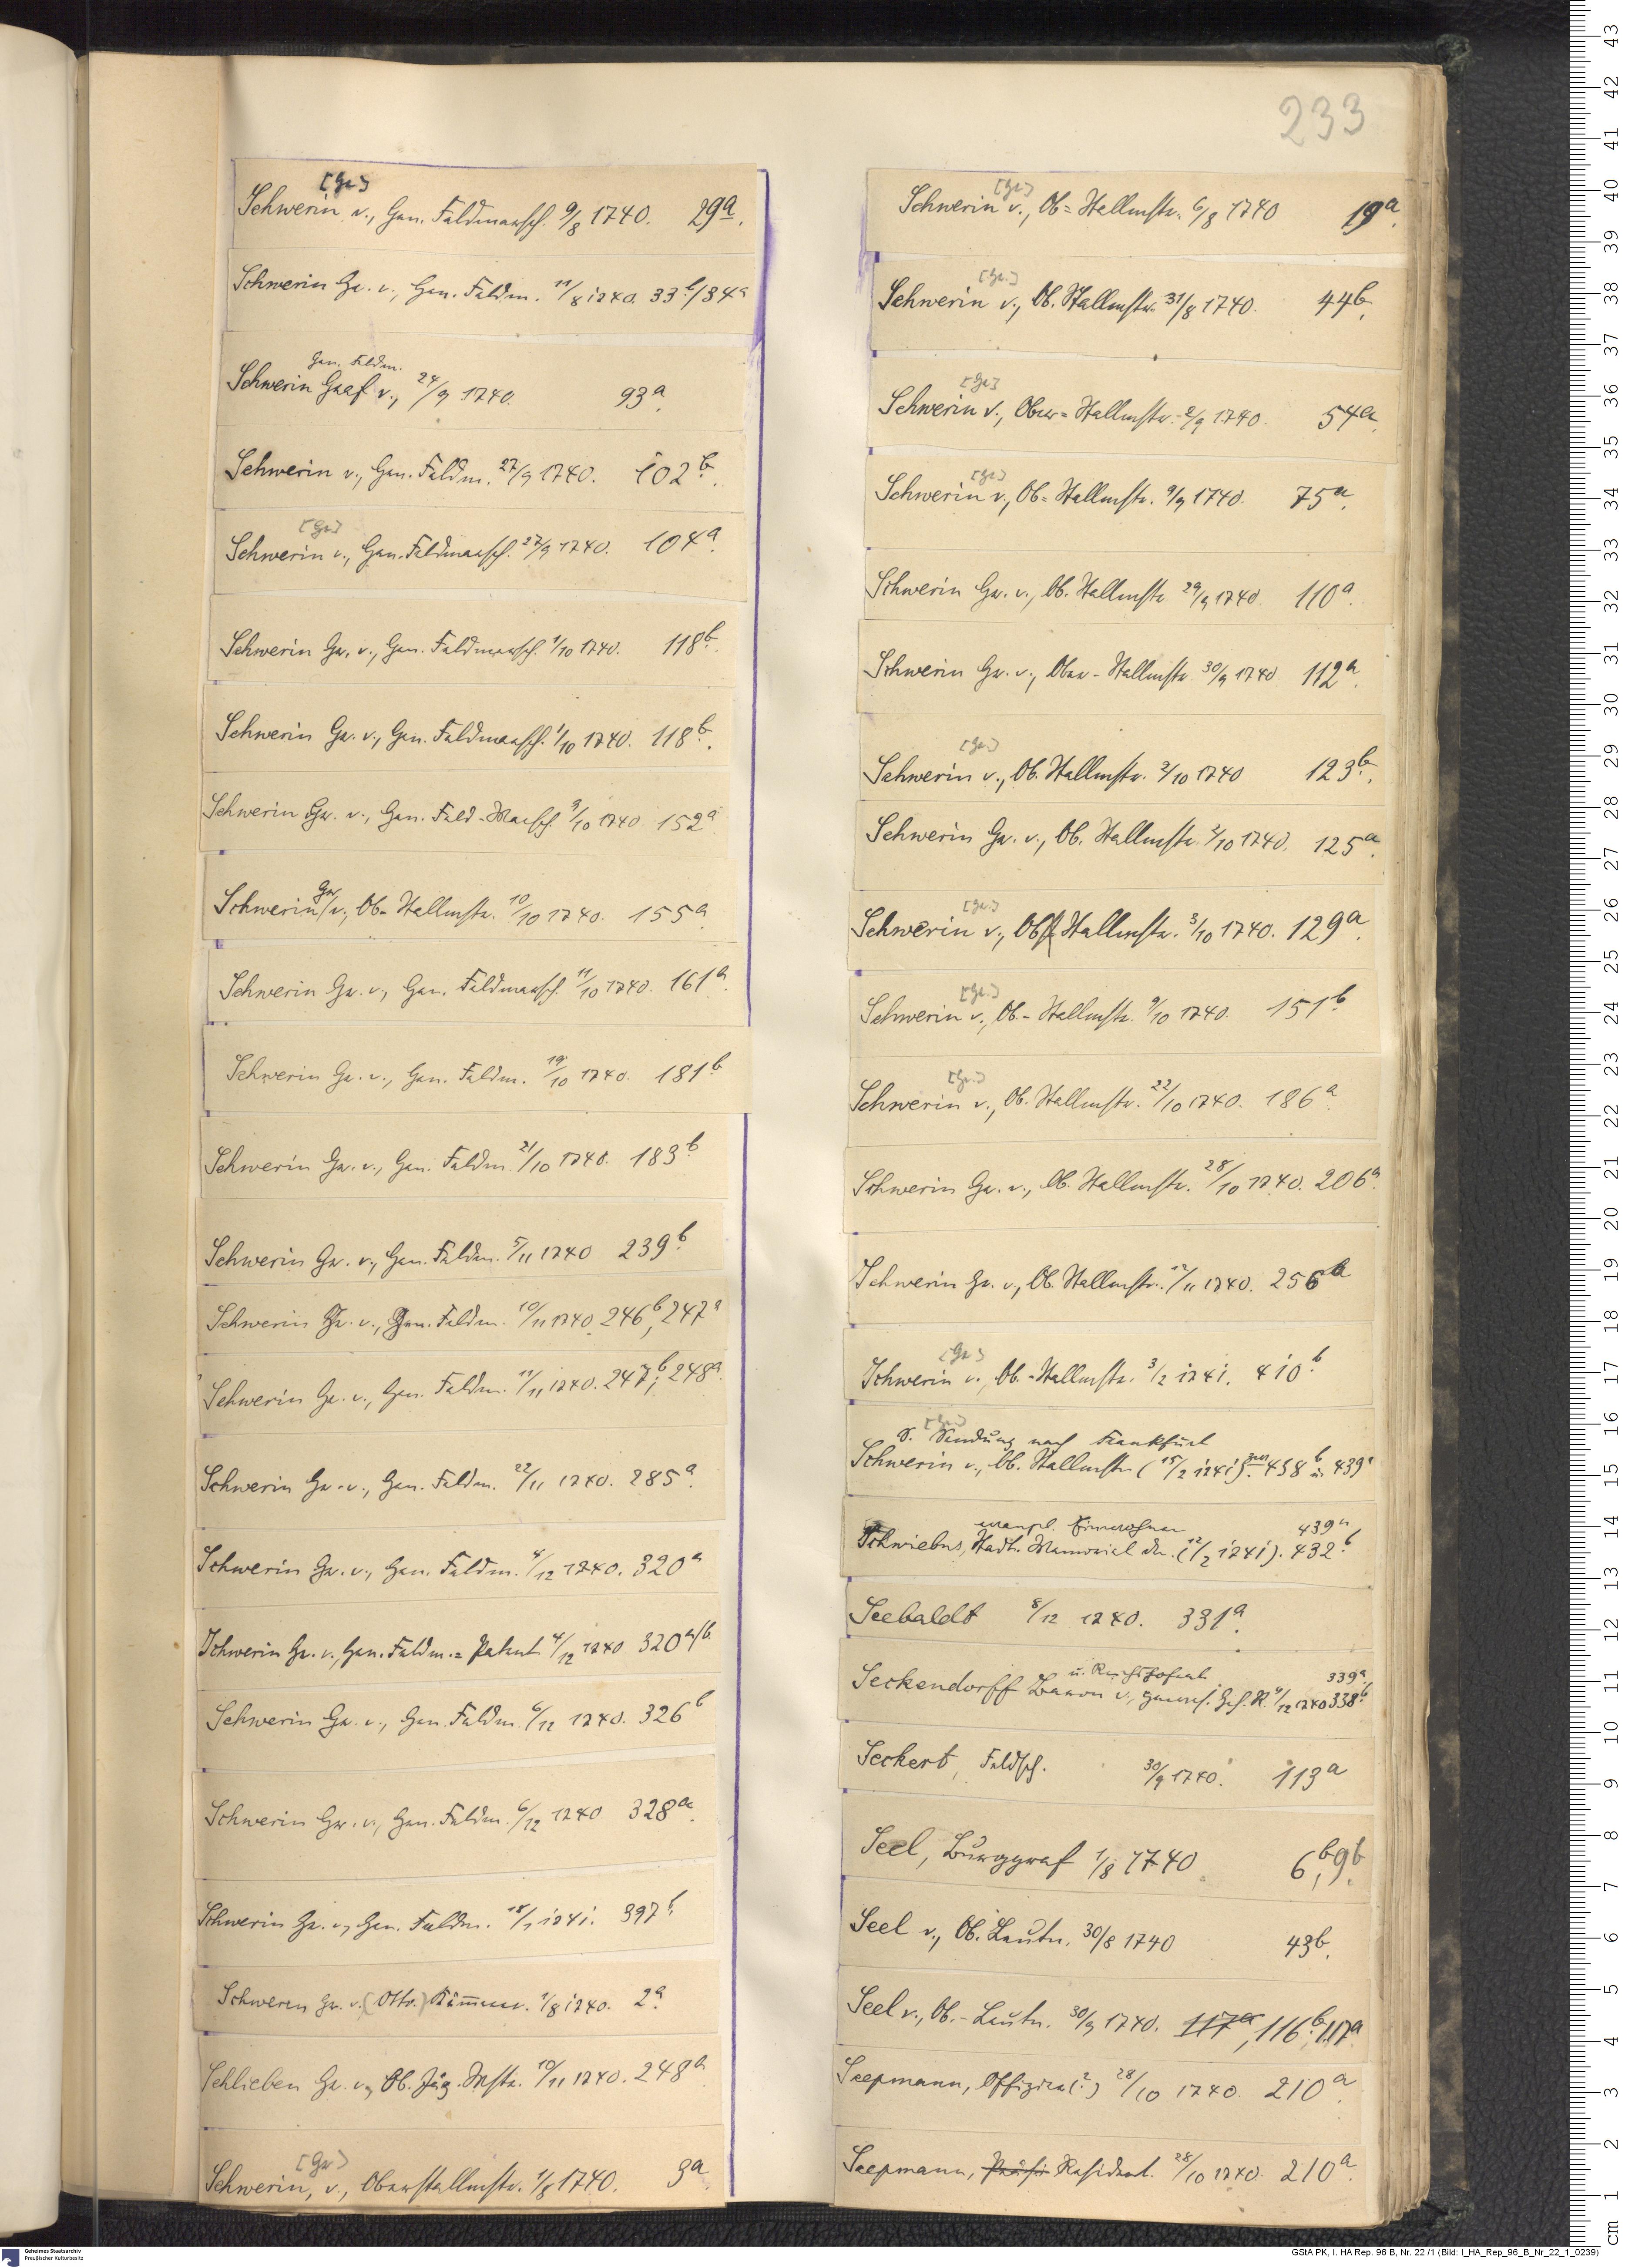 233
[Gr]
Schwerin v., Gen. Feldmarsch. 9/8 1740. 29a.
Schwerin Gr. v., Gen. Feldm. 11/8 1740. 33b/34a
Gen. Feldm.
Schwerin Graf v., 24/9 1740. 93a.
Schwerin v., Gen. Feldm. 27/9 1740. 102b.
[Gr]
Schwerin v., Gen. Feldmarsch. 27/9 1740. 104a.
Schwerin Gr. v., Gen. Feldmarsch. 1/10 1740. 118b.
Schwerin Gr. v., Gen. Feldmarsch. 1/10 1740. 118b.
Schwerin Gr. v., Gen. Feld-Marsch. 9/10 1740 152a
Gr
Schwerin v., Ob-Stallmstr. 10/10 1740. 155a.
Schwerin Gr. v., Gen. Feldmarsch. 11/10 1740. 161a.
Schwerin Gr. v., Gen. Feldm. 19/10 1740. 181b
Schwerin Gr. v., Gen. Feldm. 21/10 1740. 183b.
Schwerin Gr. v., Gen. Feldm. 5/11 1740 239b.
Schwerin Gr. v., Gen. Feldm. 10/11 1740. 246b, 247a
Schwerin Gr. v., Gen. Feldm. 11/11 1740. 247b; 248a.
Schwerin Gr. v., Gen. Feldm. 22/11 1740. 285a.
Schwerin Gr. v., Gen. Feldm. 4/12 1740. 320a
Schwerin Gr. v., Gen. Feldm.= Patent 4/12 1740 320a/b
Schwerin Gr. v., Gen. Feldm. 6/12 1740. 326b
Schwerin Gr. v., Gen. Feldm. 6/12 1740 328a.
Schwerin Gr. v., Gen. Feldm. 18/1 1741. 397b.
Schweren Gr. v. (Otto.) Kämmerer. 1/8 1740. 2a.
Schlieben Gr. v., Ob. Jäg. Mstr. 10/11 1740. 248a.
[Gr]
Schwerin, v., Oberstallmstr. 1/8 1740. 3a.
[Gr]
Schwerin v., Ob= Stallmstr. 6/8 1740 19a.
[Gr.]
Schwerin v., Ob. Stallmstr. 31/8 1740. 44b.
[Gr]
Schwerin v., Ober= Stallmstr. 2/9 1740. 54a.
[Gr]
Schwerin v., Ob= Stallmstr. 9/9 1740. 75a.
Schwerin Gr. v., Ob. Stallmstr 29/9 1740. 110a.
Schwerin Gr. v., Ober-Stallmstr 30/9 1740 112a.
[Gr.]
Schwerin v., Ob. Stallmstr. 2/10 1740 123b.
Schwerin Gr. v., Ob. Stallmstr. 2/10 1740. 125a.
[Gr.]
Schwerin v., Ob Stallmstr. 3/10 1740. 129a.
[Gr.]
Schwerin v., Ob.-Stallmstr. 9/10 1740. 151b
[Gr.]
Schwerin v., Ob. Stallmstr. 22/10 1740. 186a.
Schwerin Gr. v., Ob. Stallmstr. 28/10 1740. 206a.
Schwerin Gr. v., Ob. Stallmstr. 12/11 1740. 256b
[Gr]
Schwerin v., Ob.-Stallmstr. 3/2 1741. 410b.
[Gr.]
s. Sendung nach Frankfurt
Schwerin v., Ob. Stallmstr. (15/2 1741) 438b u. 439a
evangel. Einwohner 439a
Schwiebus, Stadt. Memorial der. (12/2 1741). 432b.
Seebaldt 8/12 1740. 331a.
u. Reichshofrat 339a
Seckendorff Baron v., Geh. R. 9/12 1740 338b.
Seckert, Feldsch. 30/9 1740. 113a
Seel, Burggraf 1/8 1740 6b, 9b.
Seel v., Ob. Leutn. 30/8 1740 43b.
Seel v., Ob.-Leutn. 30/9 1740. 117a, 116b; 117a
Seepmann, Offizier(?) 28/10 1740. 210a.
Seepmann, Präsi Resident. 28/10 1740. 210a.
cm 1 2 3 4 5 6 7 8 9 10 11 12 13 14 15 16 17 18 19 20 21 22 23 24 25 26 27 28 29 30 31 32 33 34 35 36 37 38 39 40 41 42 43
Geheimes Staatsarchiv
Preußischer Kulturbesitz
GStA PK, I. HA Rep. 96 B, Nr. 22 /1 (Bild: I_HA_Rep_96_B_Nr_22_1_0239)